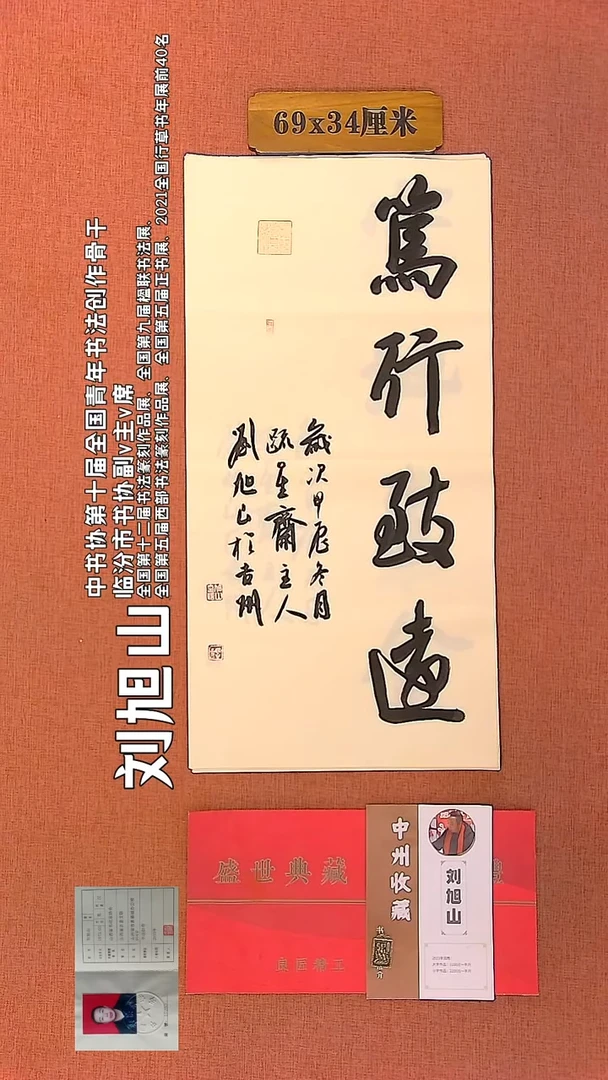 69x34厘米
篤行致遠
歲次甲辰冬月
疏星齋主人
劉旭山於吉州
刘旭山
中书协第十届全国青年书法创作骨干
临汾市书协副v主v席
全国第十二届书法篆刻作品展、全国第九届楹联书法展、
全国第五届西部书法篆刻作品展、全国第五届正书展、2021全国行草书年展前40名
盛世典藏
中州收藏
刘旭山